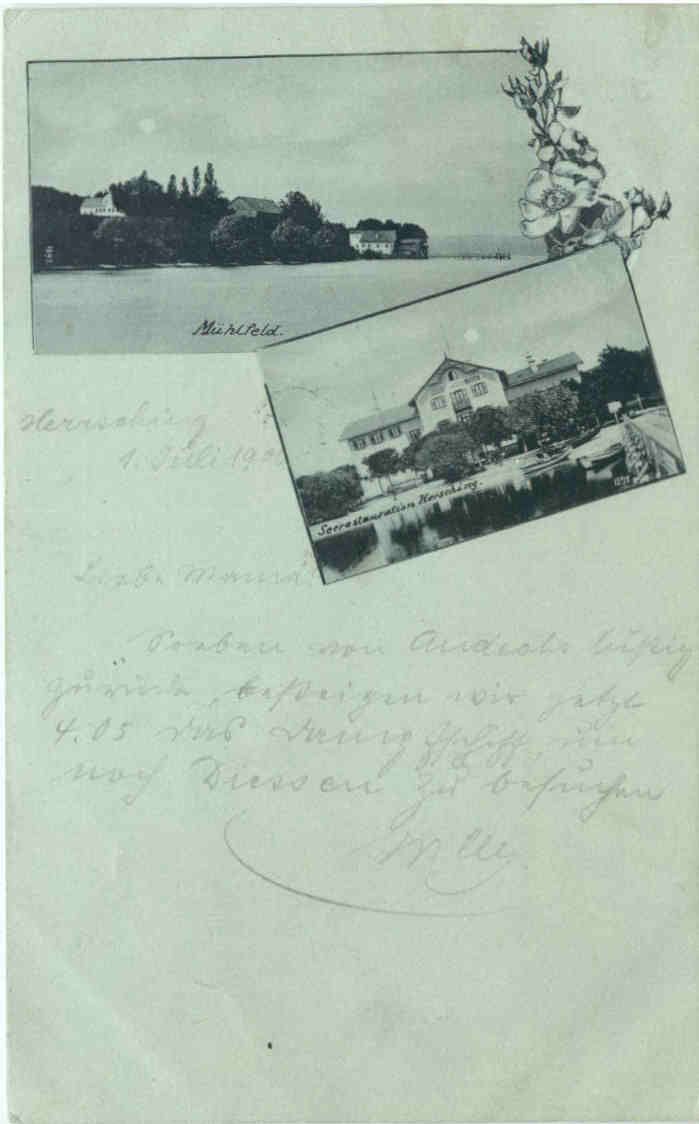 Mühlfeld.
Seerestauration Herrsching.
Herrsching
1. Juli
Liebe Mama!
Soeben von Andechs lustig
zurück, besteigen wir jetzt
4.05 das Dampfschiff, um
noch Diessen zu besuchen